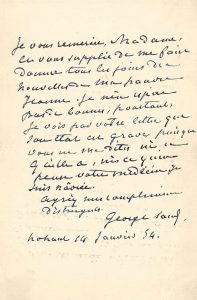 Je vous remercie, Madame,
et vous supplie de me faire
donner tous les jours des
nouvelles de ma pauvre
Jeanne. Je n'en ai
pas de bonnes, pourtant,
Je vois par votre lettre que
son état est grave, puisque
vous ne me dites ni ce
qu'elle a, ni ce qu'en
pense votre médecin. Je
suis navrée.
Agréez mes compliments
distingués.
George Sand
Nohant 14 Janvier 54.